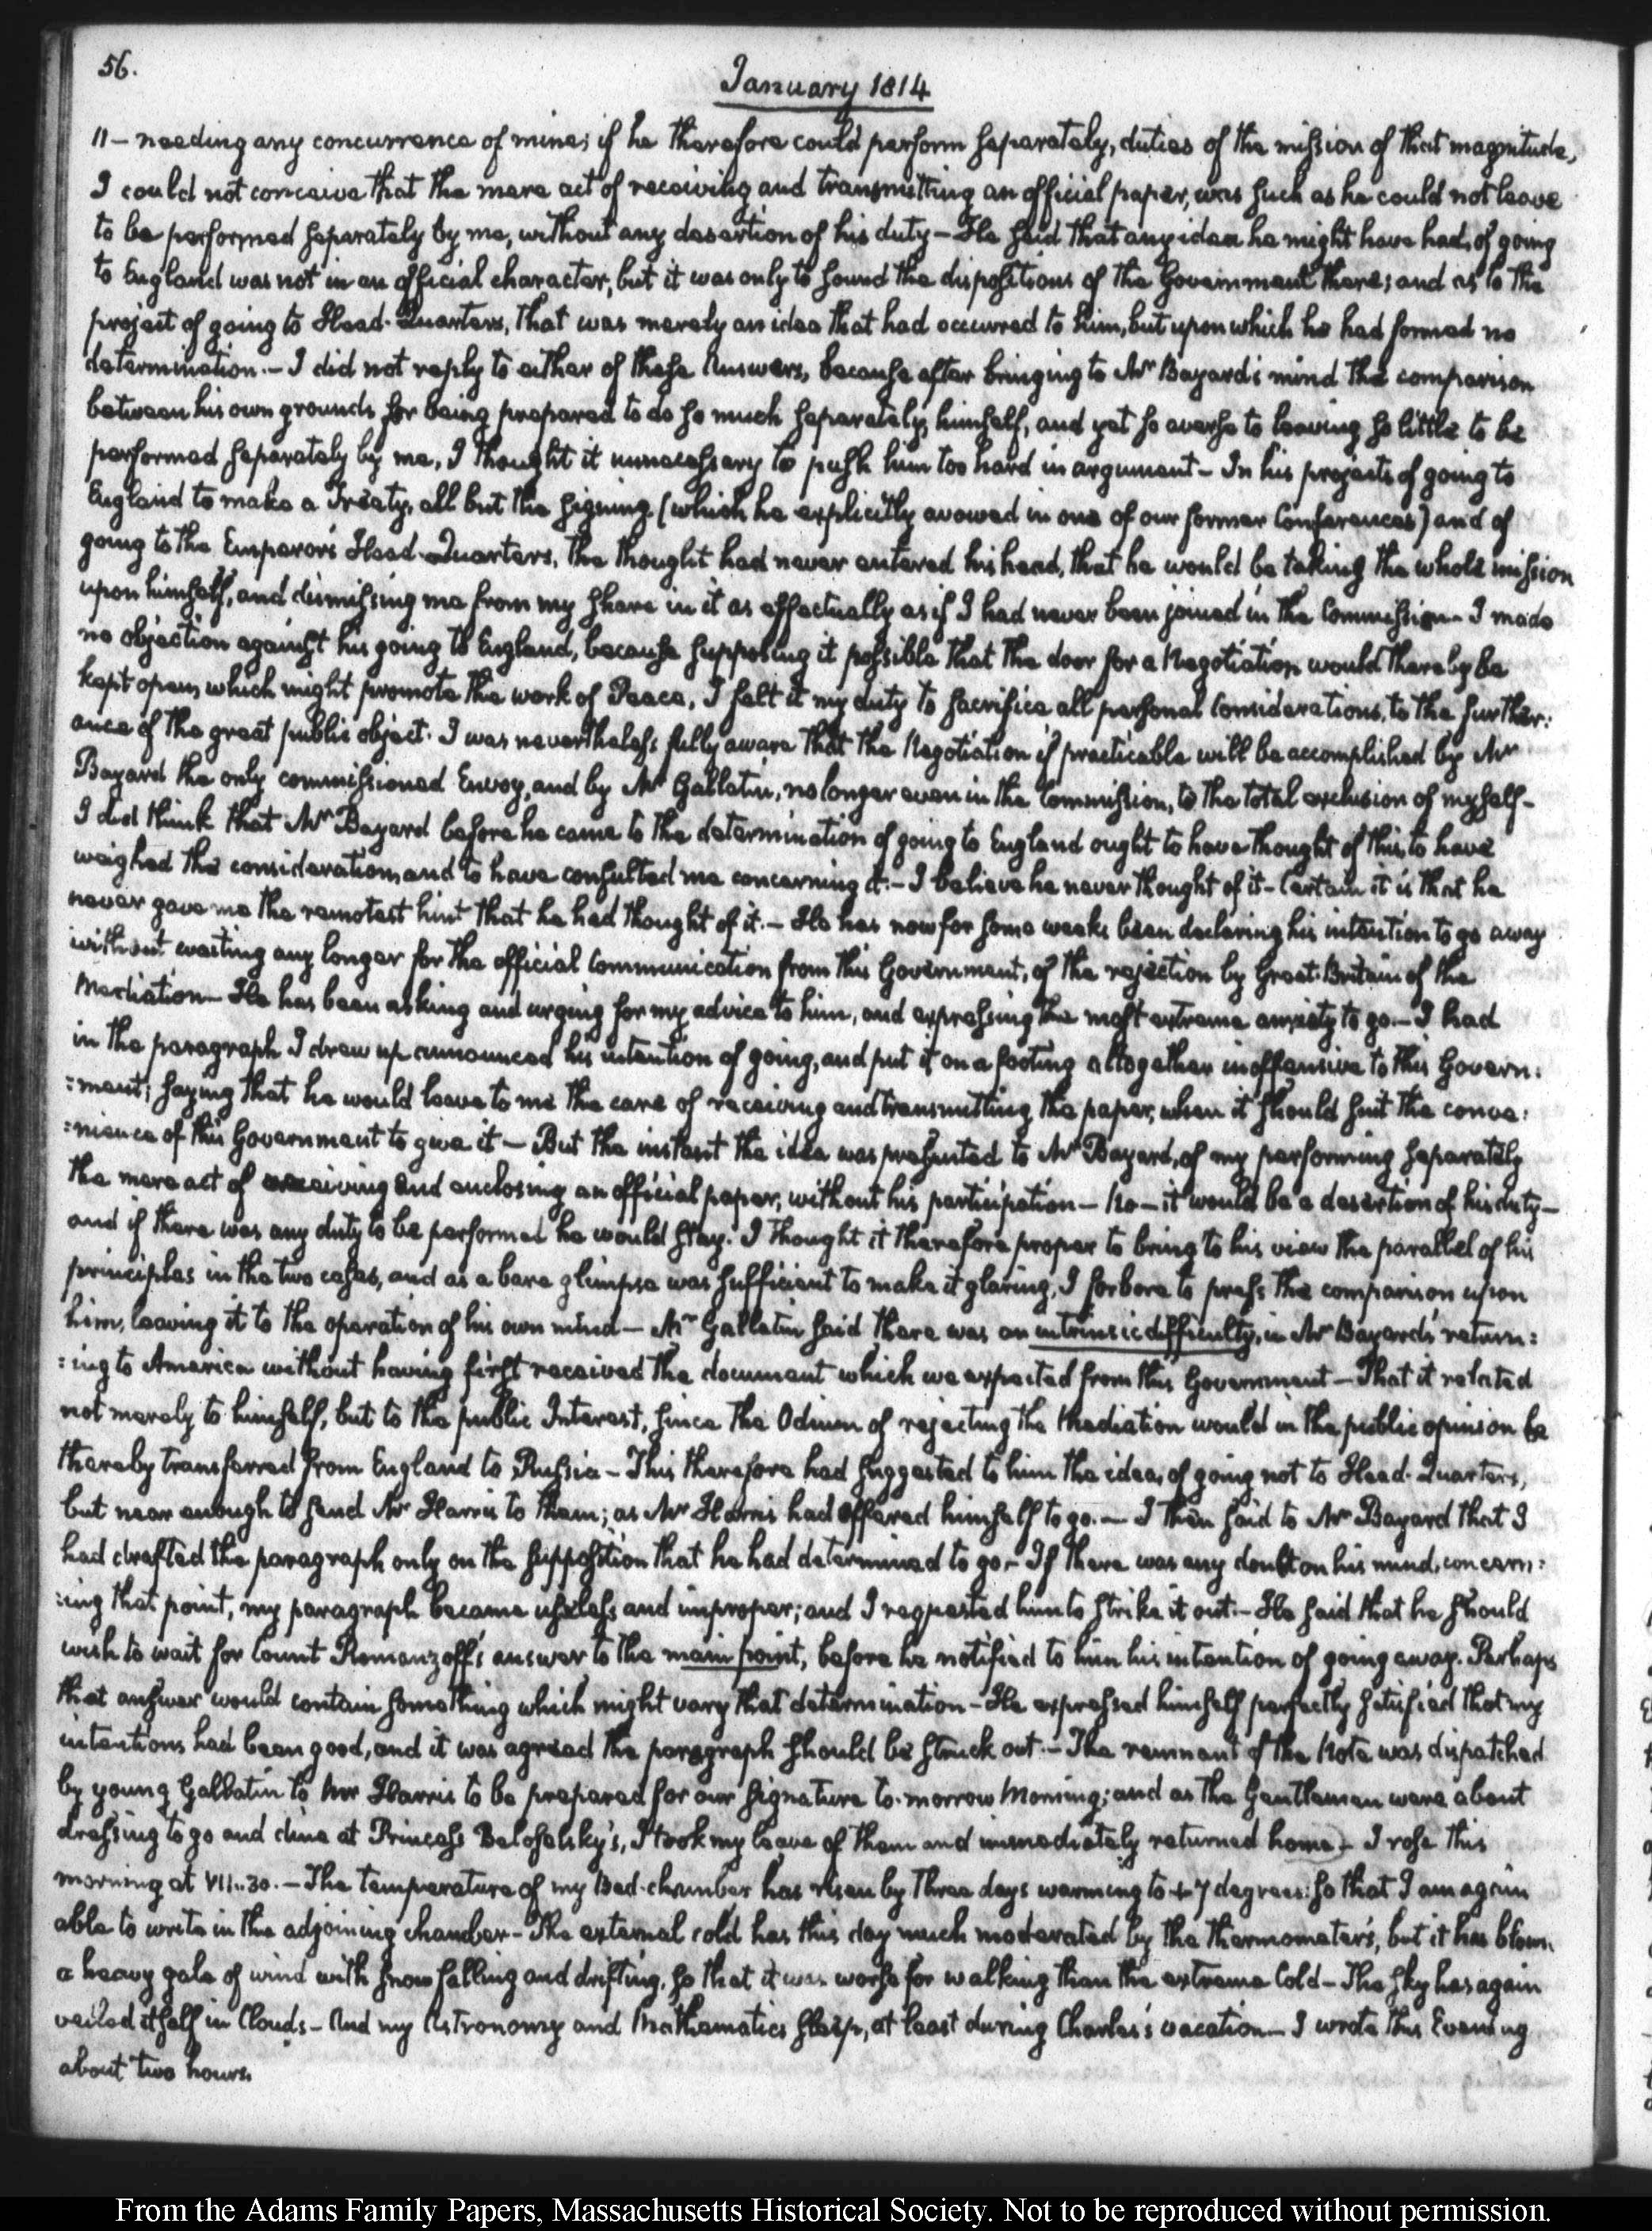 56.
January 1814
11 — needing any concurrence of mine; if he therefore could perform separately, duties of the mission of that magnitude,
I could not conceive that the mere act of receiving and transmitting an official paper, was such as he could not leave
to be performed separately by me, without any desertion of his duty — He said that any idea he might have had, of going
to England was not in an official character, but it was only to sound the dispositions of the Government there; and as to the
project of going to Head-Quarters, that was merely an idea that had occurred to him, but upon which he had formed no
determination. — I did not reply to either of these Answers, because after bringing to Mr Bayard's mind the comparison
between his own grounds for being prepared to do so much separately, himself, and yet so averse to leaving so little to be
performed separately by me, I thought it unnecessary to push him too hard in argument — In his projects of going to
England to make a Treaty, all but the signing (which he explicitly avowed in one of our former Conferences) and of
going to the Emperor's Head-Quarters, the thought had never entered his head, that he would be taking the whole mission
upon himself, and dismissing me from my share in it as effectually as if I had never been joined in the Commission — I made
no objection against his going to England, because supposing it possible that the door for a Negotiation would thereby be
kept open, which might promote the work of Peace, I felt it my duty to sacrifice all personal Considerations, to the further:
ance of the great public object. I was nevertheless fully aware that the Negotiation if practicable will be accomplished by Mr
Bayard the only commissioned Envoy, and by Mr Gallatin, no longer even in the Commission, to the total exclusion of myself —
I did think that Mr Bayard before he came to the determination of going to England ought to have thought of this, to have
weighed the consideration, and to have consulted me concerning it. — I believe he never thought of it — Certain it is that he
never gave me the remotest hint that he had thought of it. — He has now for some weeks been declaring his intention to go away
without waiting any longer for the official Communication from this Government, of the rejection by Great-Britain of the
Mediation — He has been asking and urging for my advice to him, and expressing the most extreme anxiety to go. — I had
in the paragraph I drew up announced his intention of going, and put it on a footing altogether inoffensive to this Govern:
:ment; saying that he would leave to me the care of receiving and transmitting the paper, when it should suit the conve:
:nience of this Government to give it — But the instant the idea was presented to Mr Bayard, of my performing separately
the mere act of receiving and enclosing an official paper, without his participation — No — it would be a desertion of his duty —
and if there was any duty to be performed he would stay. I thought it therefore proper to bring to his view the parallel of his
principles in the two cases, and as a bare glimpse was sufficient to make it glaring, I forbore to press the comparison upon
him, leaving it to the operation of his own mind — Mr Gallatin said there was an intrinsic difficulty, in Mr Bayard's return:
:ing to America without having first received the document which we expected from this Government — That it related
not merely to himself, but to the public Interest, since the Odium of rejecting the Mediation would in the public opinion be
thereby transferred from England to Russia — This therefore had suggested to him the idea, of going not to Head-Quarters,
but near enough to send Mr Harris to them; as Mr Harris had offered himself to go. — I then said to Mr Bayard that I
had drafted the paragraph only on the supposition that he had determined to go — If there was any doubt on his mind, concern:
:ing that point, my paragraph became useless and improper; and I requested him to strike it out. — He said that he should
wish to wait for Count Romanzoff's answer to the main point, before he notified to him his intention of going away. Perhaps
that answer would contain something which might vary that determination — He expressed himself perfectly satisfied that my
intentions had been good, and it was agreed the paragraph should be struck out. — The remnant of the Note was dispatched
by young Gallatin to Mr Harris to be prepared for our signature to-morrow Morning; and as the Gentlemen were about
dressing to go and dine at Princess Beloselsky's, I took my leave of them and immediately returned home — I rose this
morning at VII..30. — The temperature of my Bed-chamber has risen by three days warming to + 7 degrees: so that I am again
able to write in the adjoining chamber — The external cold has this day much moderated by the thermometers, but it has blown
a heavy gale of wind with snow falling and drifting, so that it was worse for walking than the extreme Cold — The sky has again
veiled itself in Clouds — And my Astronomy and Mathematics sleep, at least during Charles's vacation — I wrote this Evening
about two hours.
From the Adams Family Papers, Massachusetts Historical Society. Not to be reproduced without permission.